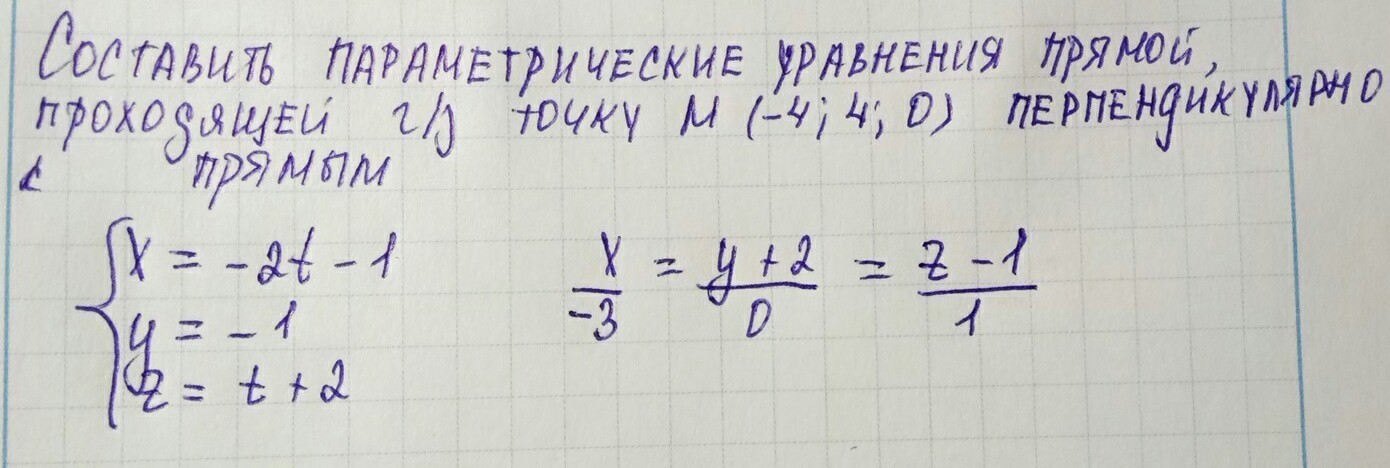 Составить параметрические уравнения прямой,
проходящей ч/з точку M (-4; 4; 0) перпендикулярно
к прямым
{ x = -2t - 1
y = -1
z = t + 2
x/-3 = y+2/0 = z-1/1